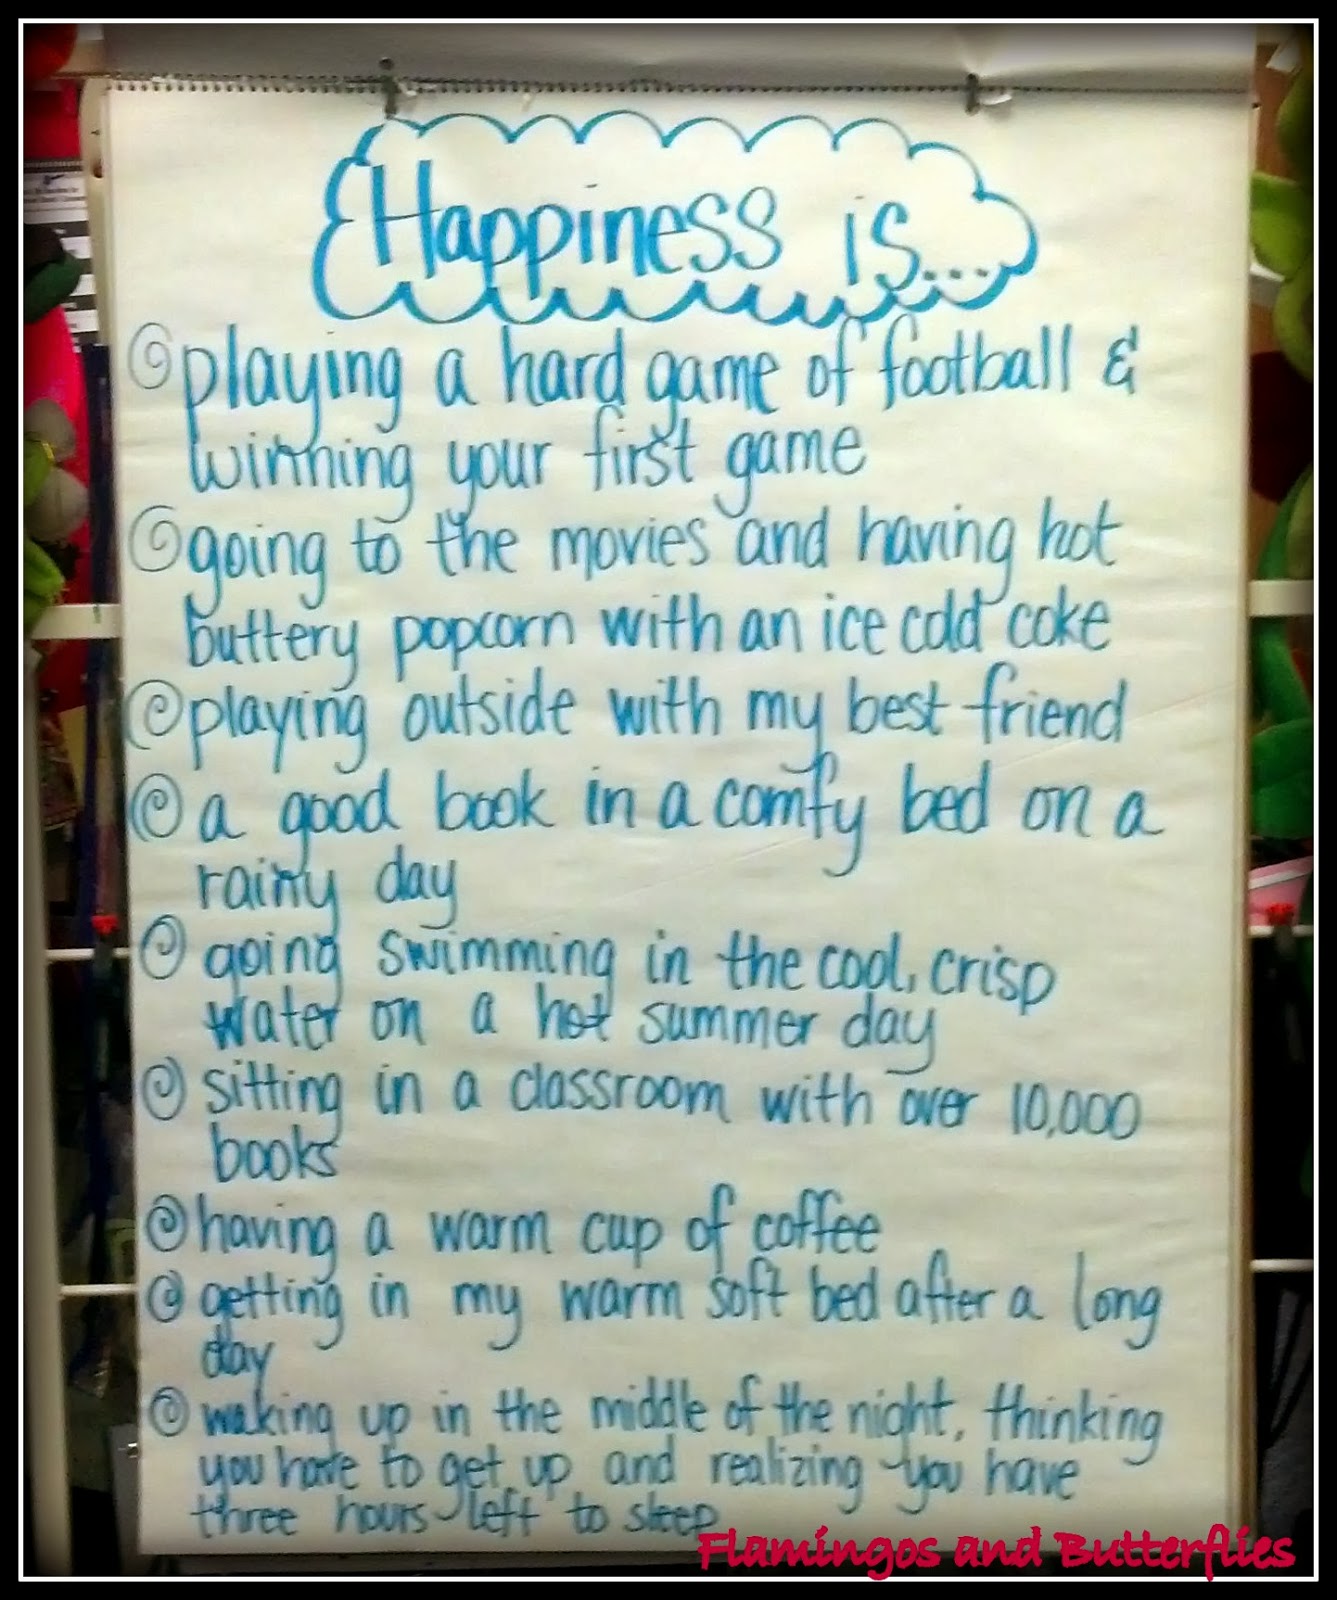 Happiness is...
playing a hard game of football &
winning your first game
going to the movies and having hot
buttery popcorn with an ice cold coke
playing outside with my best friend
a good book in a comfy bed on a
rainy day
going swimming in the cool, crisp
water on a hot summer day
sitting in a classroom with over 10,000
books
having a warm cup of coffee
getting in my warm soft bed after a long
day
waking up in the middle of the night, thinking
you have to get up and realizing you have
three hours left to sleep
Flamingos and Butterflies